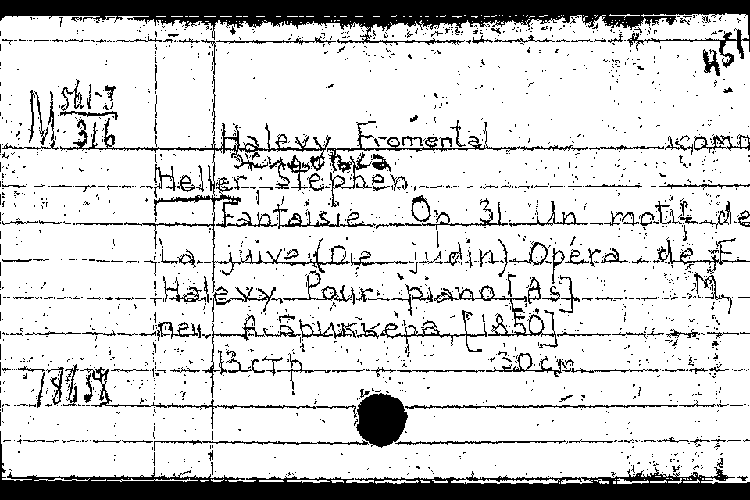 451
M 561-3
316
Halevy Fromental комп
Жидовка
Heller, Stephen.
Fantaisie Op 31 Un motif de
La juive (Die judin) Opéra de F
Halevy. Pour piano [As]. М.,
печ. А. Бриккера, [1850]
13 стр. 30 см.
18638